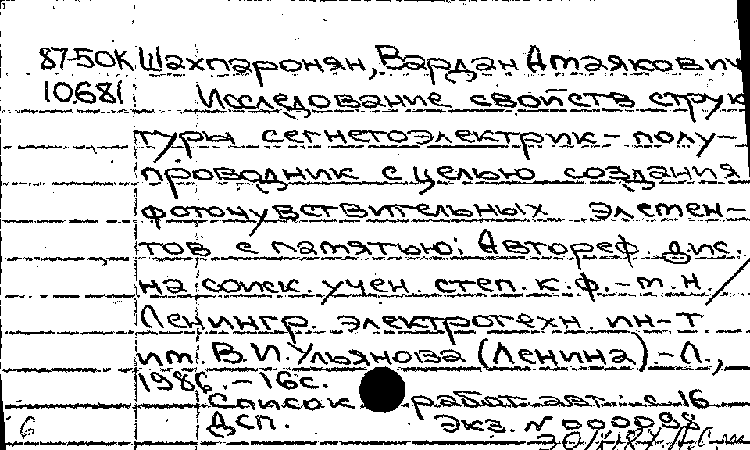 87-50К Шахпаронян, Вардан Атаякович
10681 Исследование свойств струк
туры сегнетоэлектрик - полу-
проводник с целью создания
фоточувствительных элемен-
тов с памятью: Автореф. дис.
на соиск. учен. степ. к.ф.-м.н. /
Ленингр. электротехн. ин-т
им. В.И. Ульянова (Ленина). - Л.,
1986. - 16 с.
Список работ авт.: с. 16
ДСП. Экз. N 000098
6